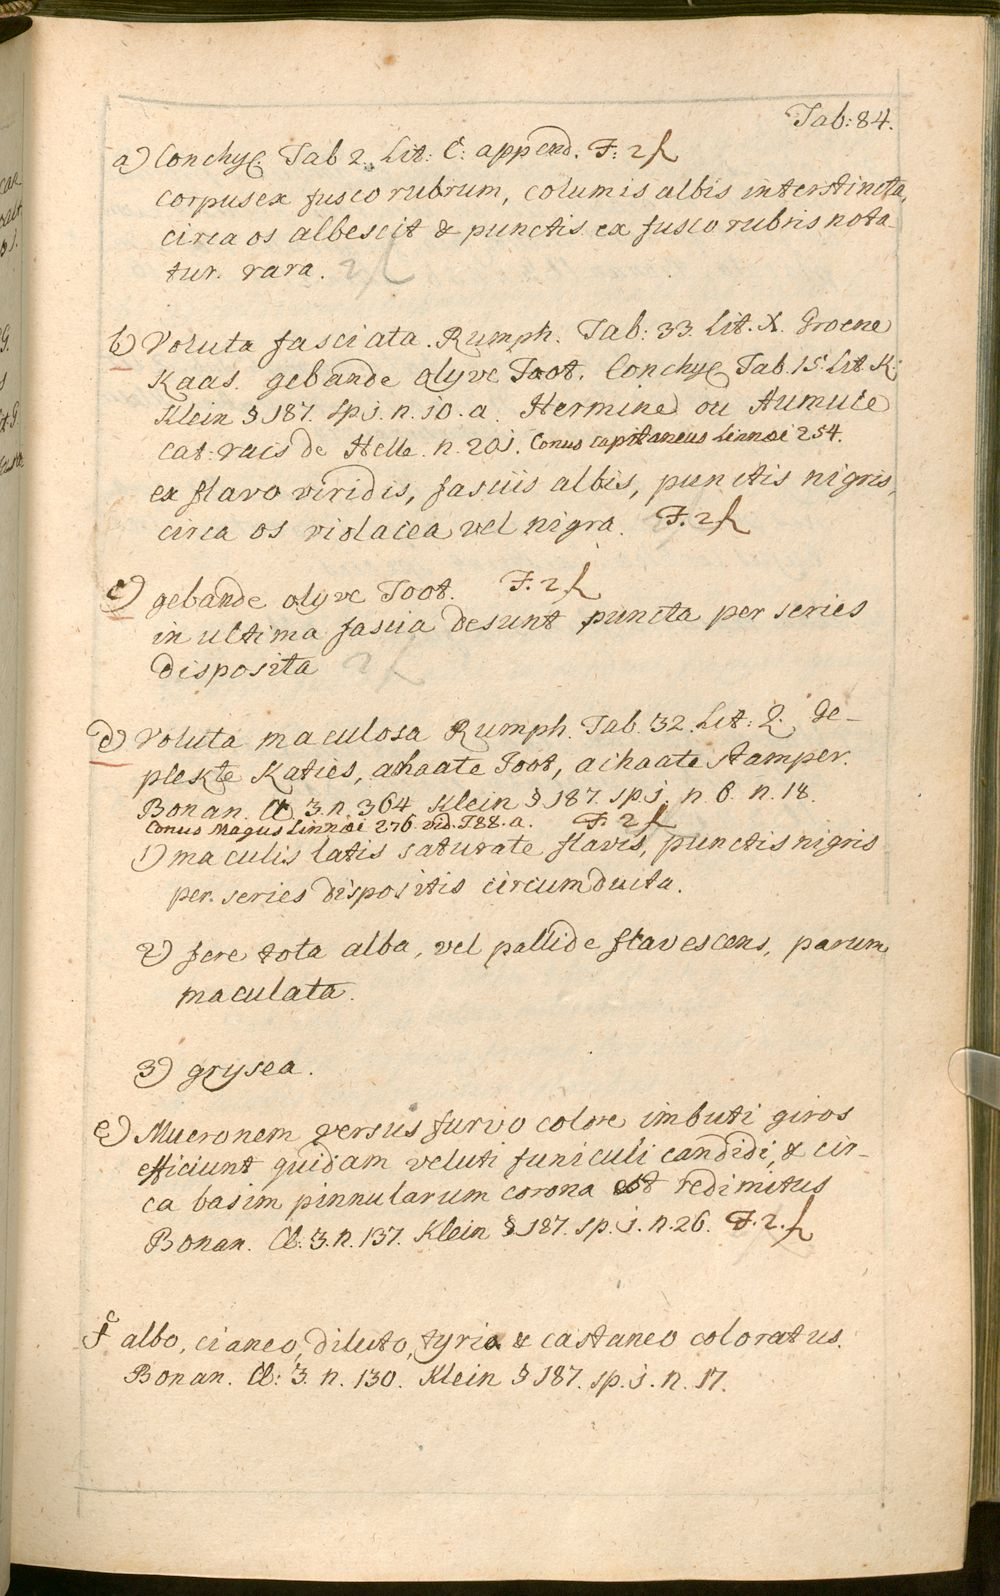 Tab: 84.
a) Conchyl. Tab 2. Lit: C: append. F: 2
corpus ex fusco rubrum, columis albis interstincta,
circa os albescit & punctis ex fusco rubris nota-
tur. rara.
b) Voluta fasciata. Rumph. Tab: 33. Lit. X. Groene
Kaas. gebande olyve Toot. Conchyl Tab. 15. Lit. K:
Klein § 187. sp j. n. 10. a. Hermine ou Aumuce
cat: rais de Helle. n. 201. Conus capitaneus Linnæi 254.
ex flavo viridis, fasciis albis, punctis nigris,
circa os violacea vel nigra. F. 2
c) gebande olyve Toot. F. 2
in ultima fascia desunt puncta per series
disposita
d) Voluta maculosa Rumph. Tab. 32. Lit: Q. Ge-
plekte Katies, achaate Toot, achaate Stamper.
Bonan. Cl. 3. n. 364. Klein § 187. sp. j. n. 6. n. 18.
Conus Magus Linnæi 276. vid. T 88. a. F. 2
1) maculis latis saturate flavis, punctis nigris
per series dispositis circumducta.
2) fere tota alba, vel pallide flavescens, parum
maculata.
3) grysea.
e) Mucronem versus furvo colore imbuti giros
efficiunt quidam veluti funiculi candidi, & cir-
ca basim pinnularum corona est redimitus
Bonan. Cl: 3. n. 137. Klein § 187. sp. j. n. 26. F. 2.
f albo, cianeo, diluto, tyrio & castaneo coloratus.
Bonan. Cl: 3. n. 130. Klein § 187. sp. j. n. 17.